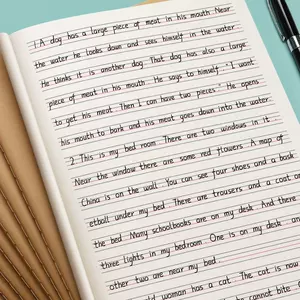 1. A dog has a large piece of meat in his mouth. Near
the water he looks down and sees himself in the water.
He thinks it is another dog. That dog has also a large
piece of meat in his mouth. He says to himself: "I want
to get his meat. Then I can have two pieces." He opens
his mouth to bark and his meat goes down into the water.
2. This is my bed room. There are two windows in it.
Near the window there are some red flowers. A map of
China is on the wall. You can see four shoes and a bask
etball under my bed. There are trousers and a coat on
the bed. Many schoolbooks are on my desk. And there
three lights in my bedroom. One is on my desk and
other two are near my bed.
old woman has a cat. The cat is now
cannot bite